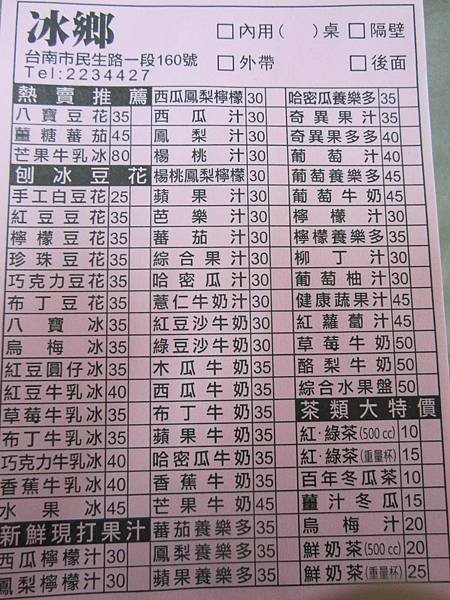 冰鄉
台南市民生路一段160號
Tel:2234427
□內用(　)桌 □隔壁
□外帶 □後面
熱賣推薦
八寶豆花35
薑糖蕃茄45
芒果牛乳冰80
刨冰豆花
手工白豆花25
紅豆豆花35
檸檬豆花35
珍珠豆花35
巧克力豆花35
布丁豆花35
八寶冰35
烏梅冰35
紅豆圓仔冰35
紅豆牛乳冰40
草莓牛乳冰35
布丁牛乳冰35
巧克力牛乳冰40
香蕉牛乳冰40
水果冰45
新鮮現打果汁
西瓜檸檬汁30
鳳梨檸檬汁30
西瓜鳳梨檸檬30
西瓜汁30
鳳梨汁30
楊桃汁30
楊桃鳳梨檸檬30
蘋果汁30
芭樂汁30
蕃茄汁30
綜合果汁30
哈密瓜汁30
薏仁牛奶汁30
紅豆沙牛奶30
綠豆沙牛奶30
木瓜牛奶35
西瓜牛奶35
布丁牛奶35
蘋果牛奶35
哈密瓜牛奶35
香蕉牛奶35
芒果牛奶45
蕃茄養樂多35
鳳梨養樂多35
蘋果養樂多35
哈密瓜養樂多35
奇異果汁35
奇異果多多40
葡萄汁40
葡萄養樂多45
葡萄牛奶45
檸檬汁30
檸檬養樂多35
柳丁汁30
葡萄柚汁30
健康蔬果汁45
紅蘿蔔汁45
草莓牛奶50
酪梨牛奶50
綜合水果盤50
茶類大特價
紅·綠茶(500cc)10
紅·綠茶(重量杯)15
百年冬瓜茶10
薑汁冬瓜15
烏梅汁20
鮮奶茶(500cc)20
鮮奶茶(重量杯)25